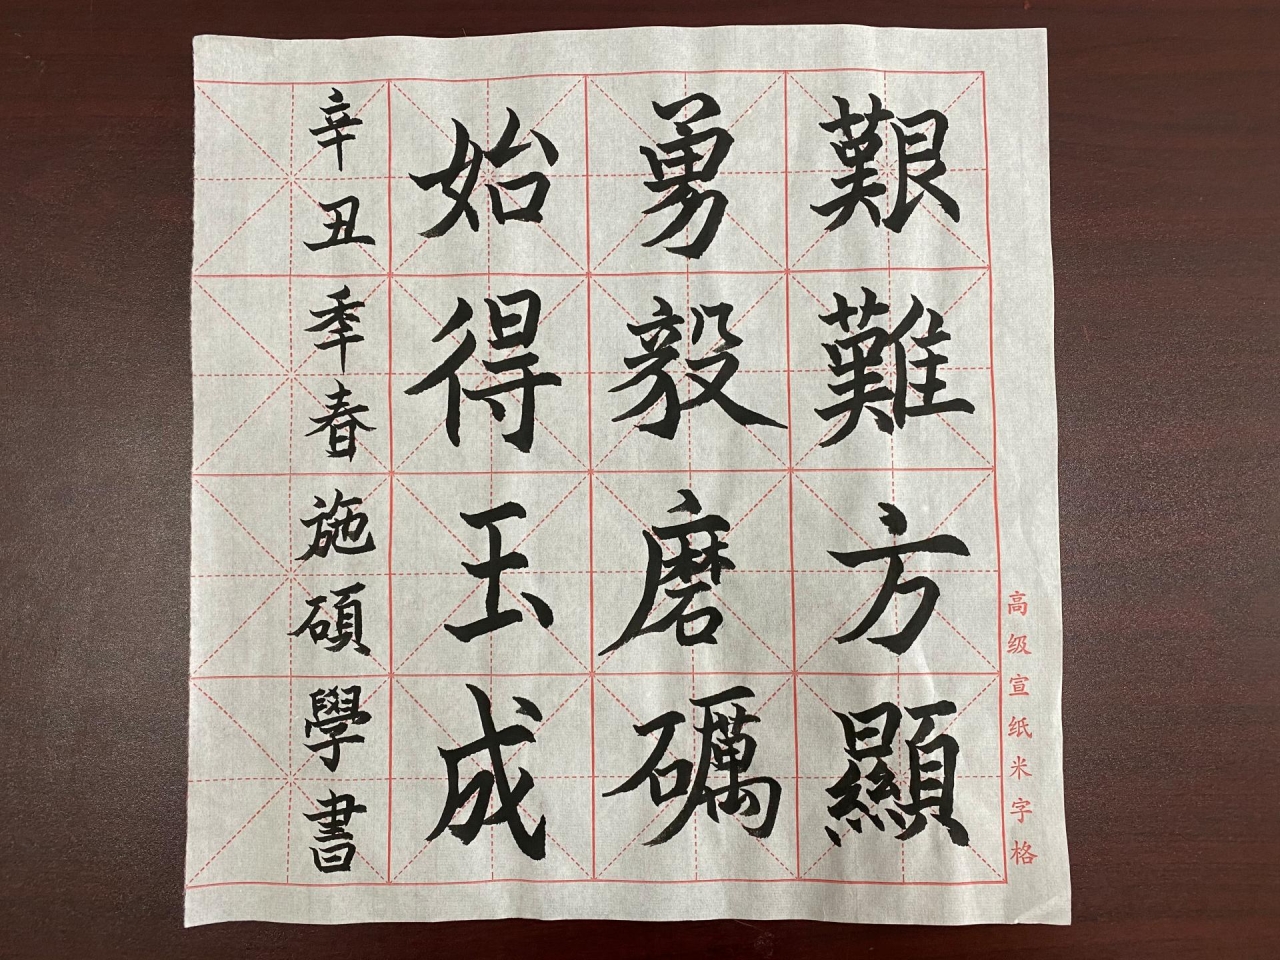 艱難方顯
勇毅磨礪
始得玉成
辛丑季春施碩學書
高级宣纸米字格